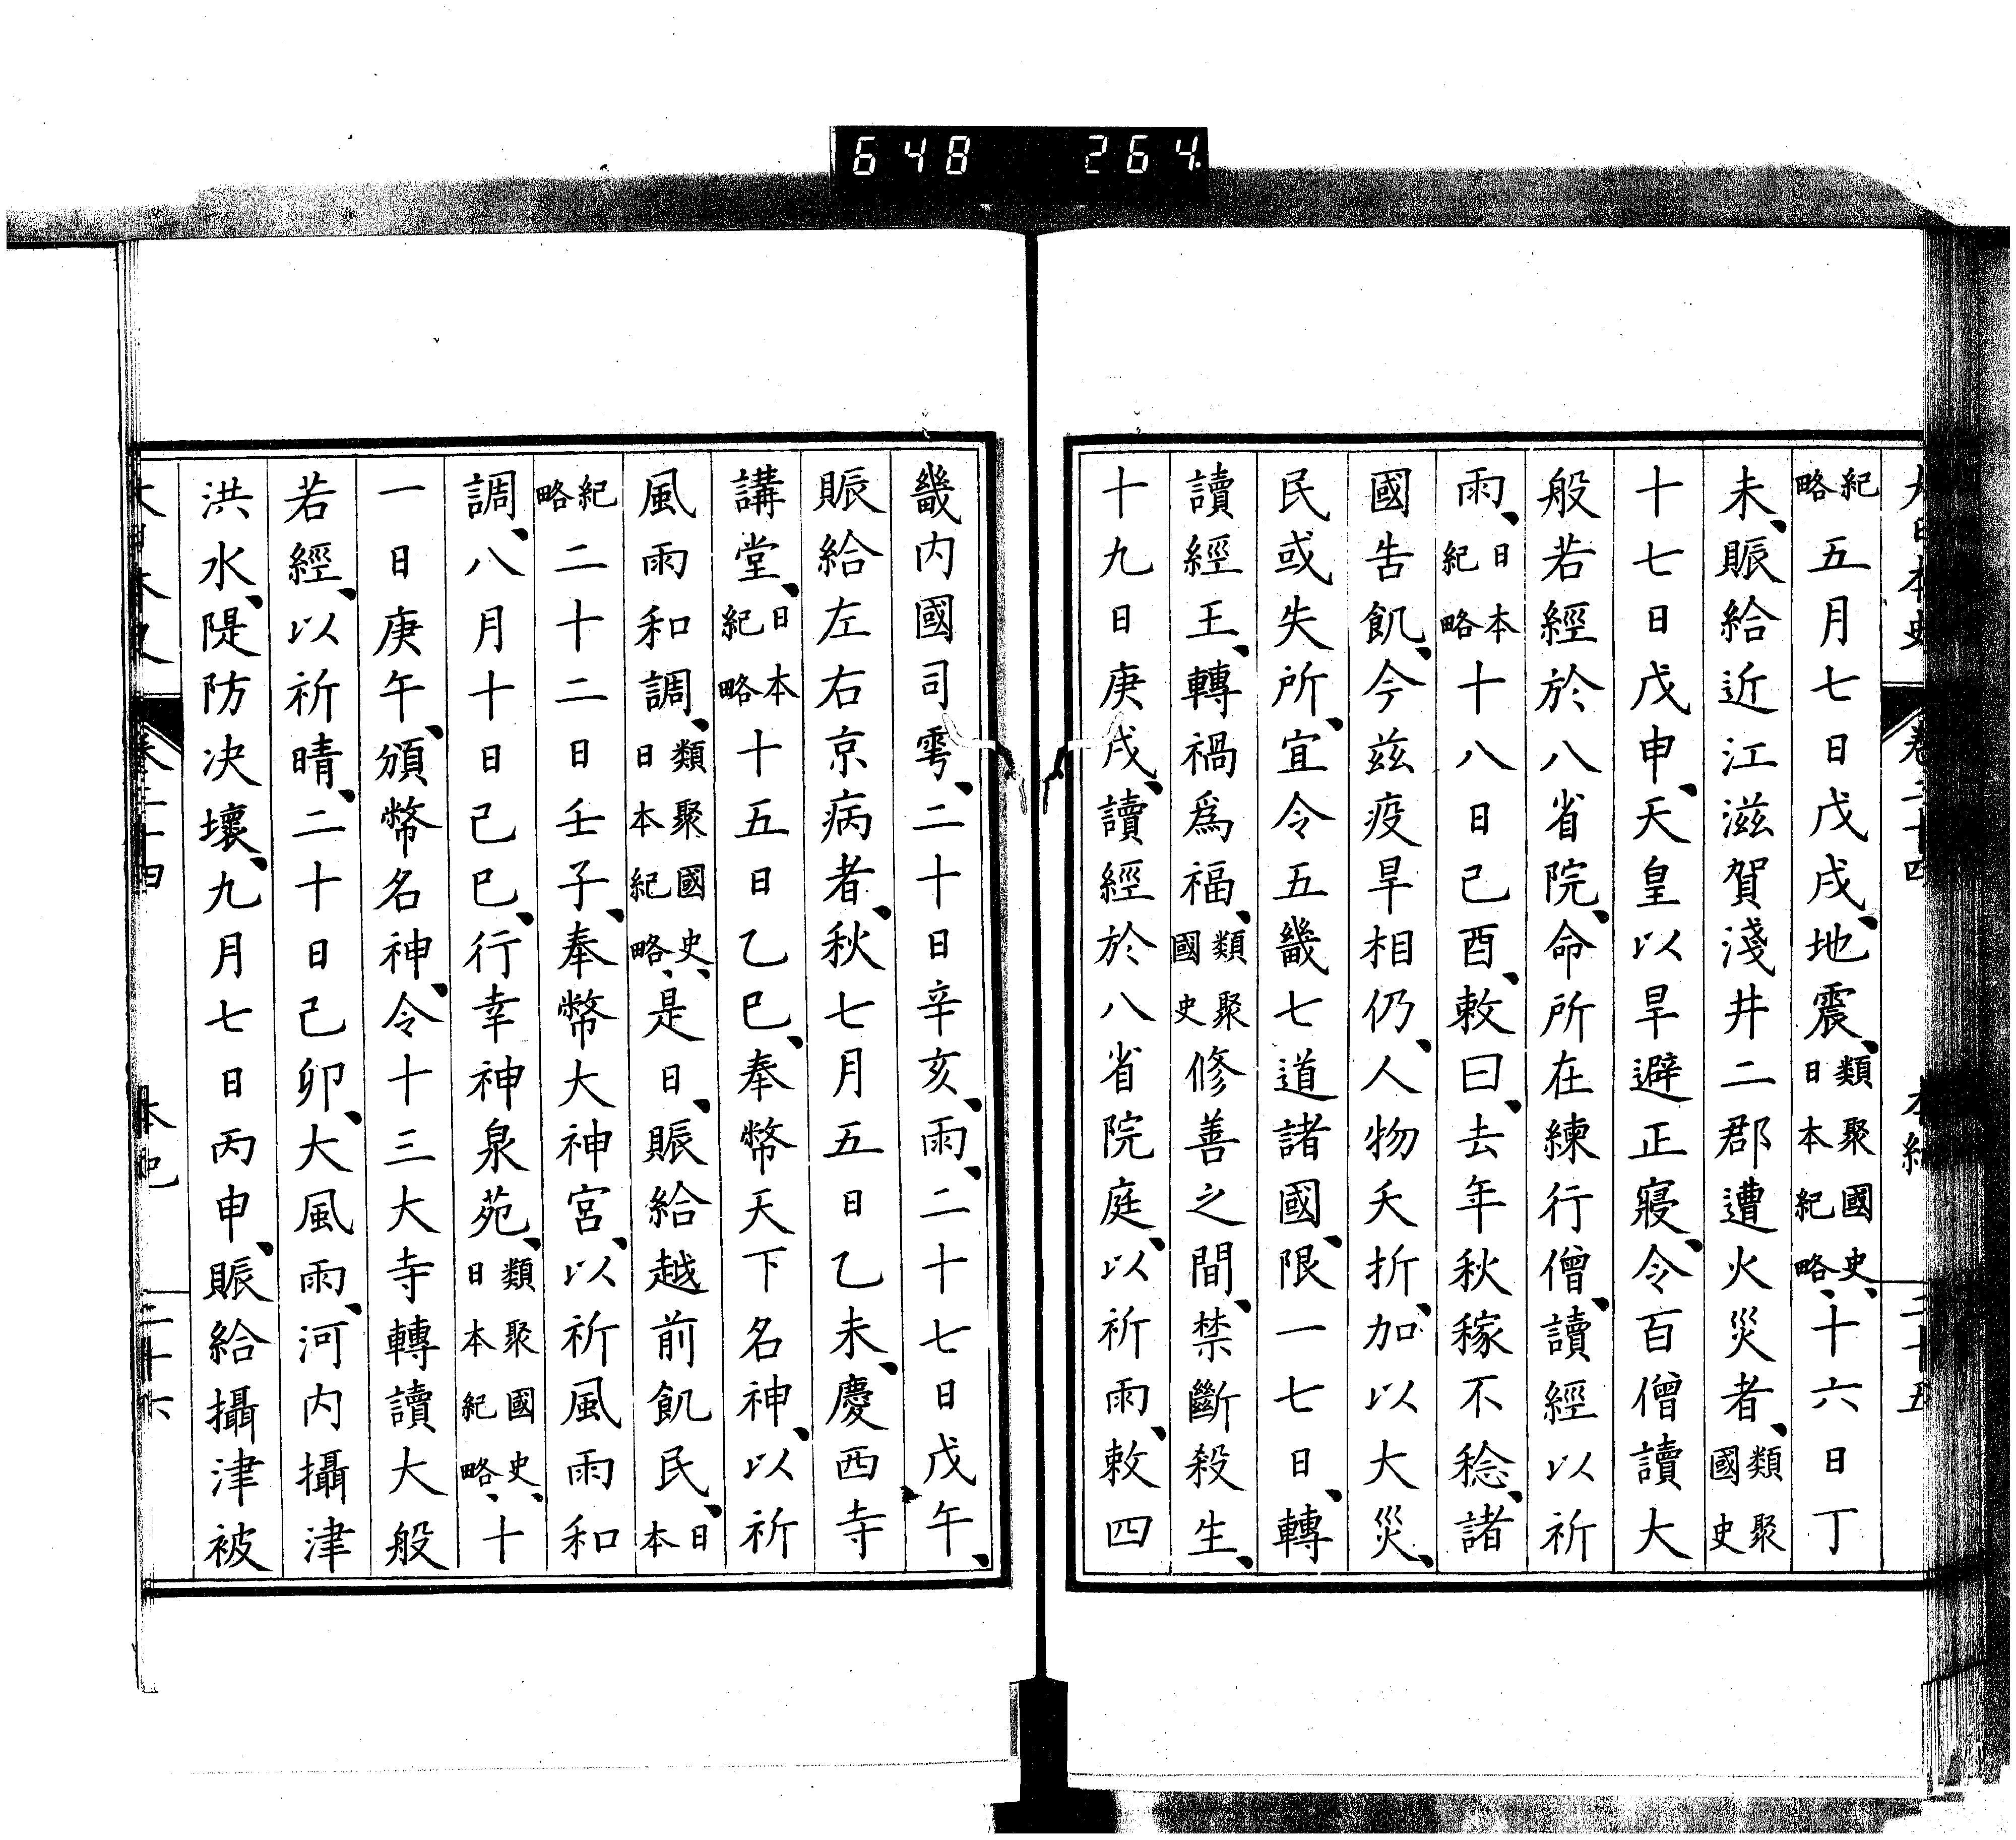 648 264.
大日本史 卷二十四 本紀 三十五
紀略五月七日戊戌、地震、類聚國史、日本紀略、十六日丁
未、賑給近江滋賀淺井二郡遭火災者、類聚國史
十七日戊申、天皇以旱避正寢、令百僧讀大
般若經於八省院、命所在練行僧、讀經以祈
雨、日本紀略十八日己酉、敕曰、去年秋稼不稔、諸
國告飢、今茲疫旱相仍、人物夭折、加以大災、
民或失所、宜令五畿七道諸國、限一七日、轉
讀經王、轉禍爲福、類聚國史修善之間、禁斷殺生、
十九日庚戌、讀經於八省院庭、以祈雨、敕四
畿内國司雩、二十日辛亥、雨、二十七日戊午、
賑給左右京病者、秋七月五日乙未、慶西寺
講堂、日本紀略十五日乙巳、奉幣天下名神、以祈
風雨和調、類聚國史、日本紀略、是日、賑給越前飢民、日本
紀略二十二日壬子、奉幣大神宮、以祈風雨和
調、八月十日己巳、行幸神泉苑、類聚國史、日本紀略、十
一日庚午、頒幣名神、令十三大寺轉讀大般
若經、以祈晴、二十日己卯、大風雨、河内攝津
洪水、隄防决壞、九月七日丙申、賑給攝津被
大日本史 卷二十四 本紀 三十六